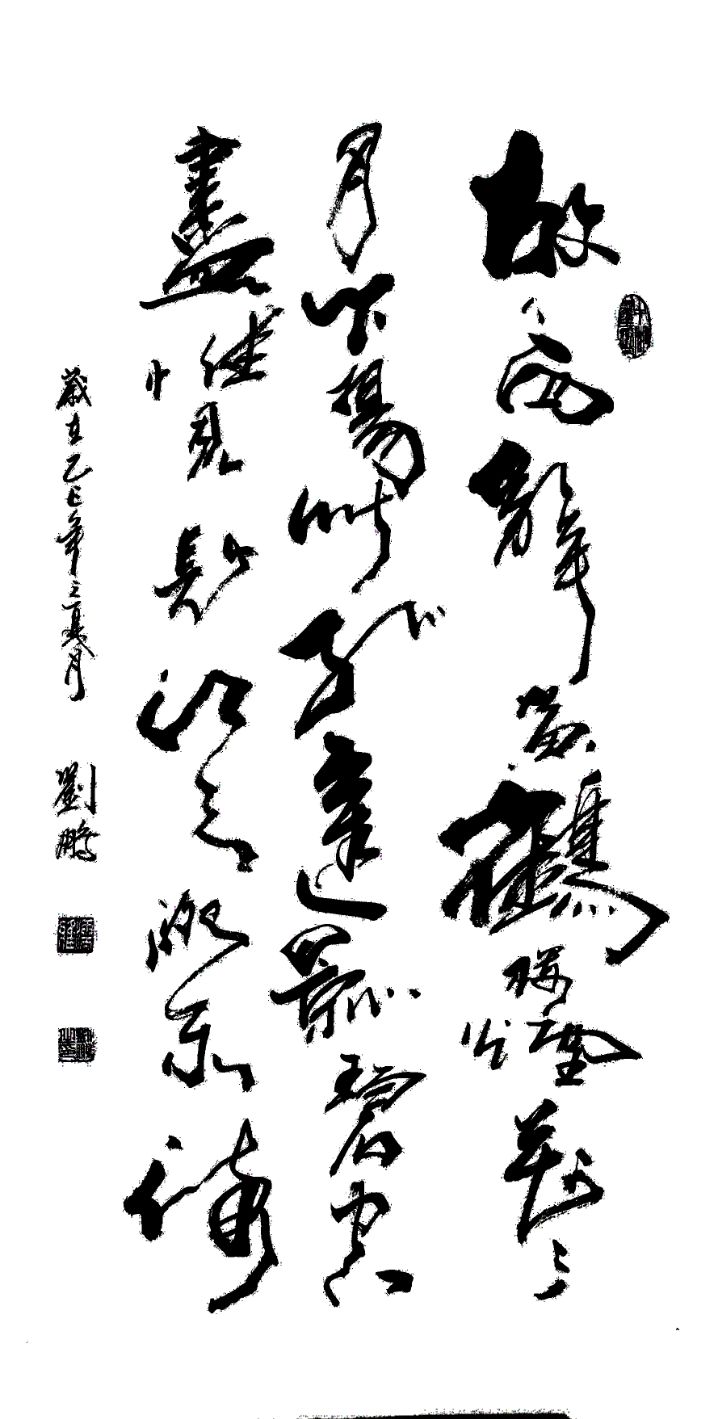 故人西辭黃鶴樓煙花三
月下揚州孤帆遠影碧空
盡惟見長江天際流
歲在乙巳年之夏月 劉鵬